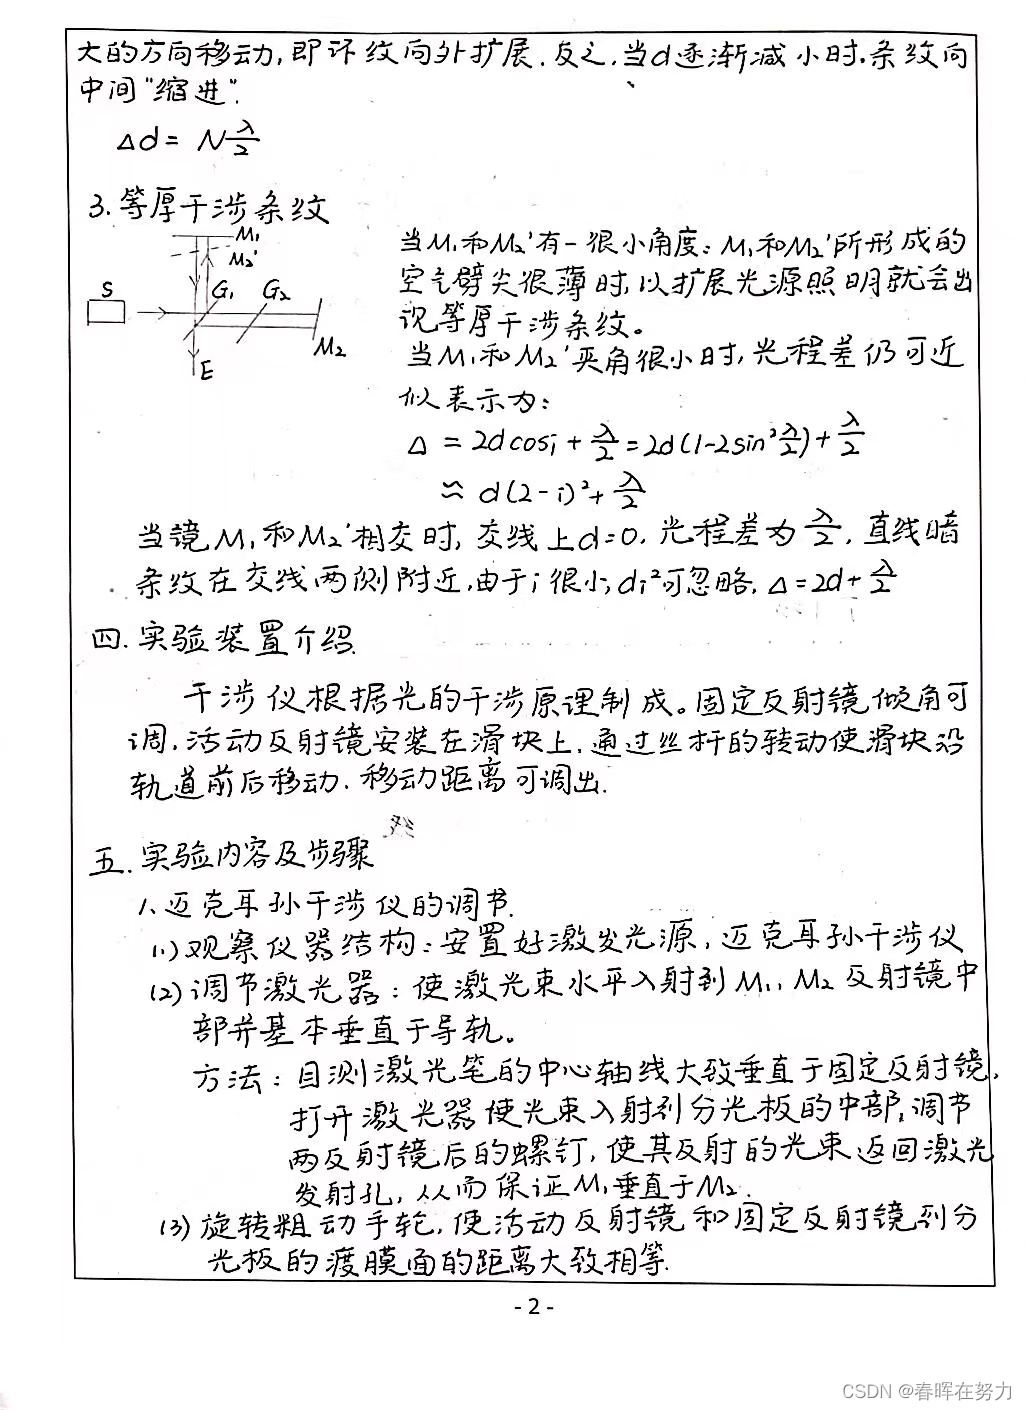 大的方向移动,即环纹向外扩展.反之.当d逐渐减小时.条纹向
中间“缩进”.
Δd = N λ/2
3.等厚干涉条纹
M₁
M₂'
S
G₁ G₂
M₂
E
当M₁和M₂'有一很小角度:M₁和M₂'所形成的
空气劈尖很薄时,以扩展光源照明就会出
现等厚干涉条纹。
当M₁和M₂'夹角很小时,光程差仍可近
似表示为:
Δ = 2dcosi + λ/2 = 2d(1-2sin²λ/2) + λ/2
≈ d(2-i)² + λ/2
当镜M₁和M₂'相交时,交线上d=0.光程差为λ/2.直线暗
条纹在交线两侧附近,由于i很小,di²可忽略.Δ=2d+λ/2
四.实验装置介绍.
干涉仪根据光的干涉原理制成。固定反射镜倾角可
调.活动反射镜安装在滑块上.通过丝杆的转动使滑块沿
轨道前后移动.移动距离可调出.
五.实验内容及步骤
1、迈克耳孙干涉仪的调节.
(1)观察仪器结构:安置好激发光源,迈克耳孙干涉仪
(2)调节激光器:使激光束水平入射到M₁、M₂反射镜中
部并基本垂直于导轨。
方法:目测激光笔的中心轴线大致垂直于固定反射镜,
打开激光器使光束入射到分光板的中部,调节
两反射镜后的螺钉,使其反射的光束返回激光
发射孔,从而保证M₁垂直于M₂.
(3)旋转粗动手轮,使活动反射镜和固定反射镜到分
光板的渡膜面的距离大致相等.
- 2 -
CSDN @春晖在努力